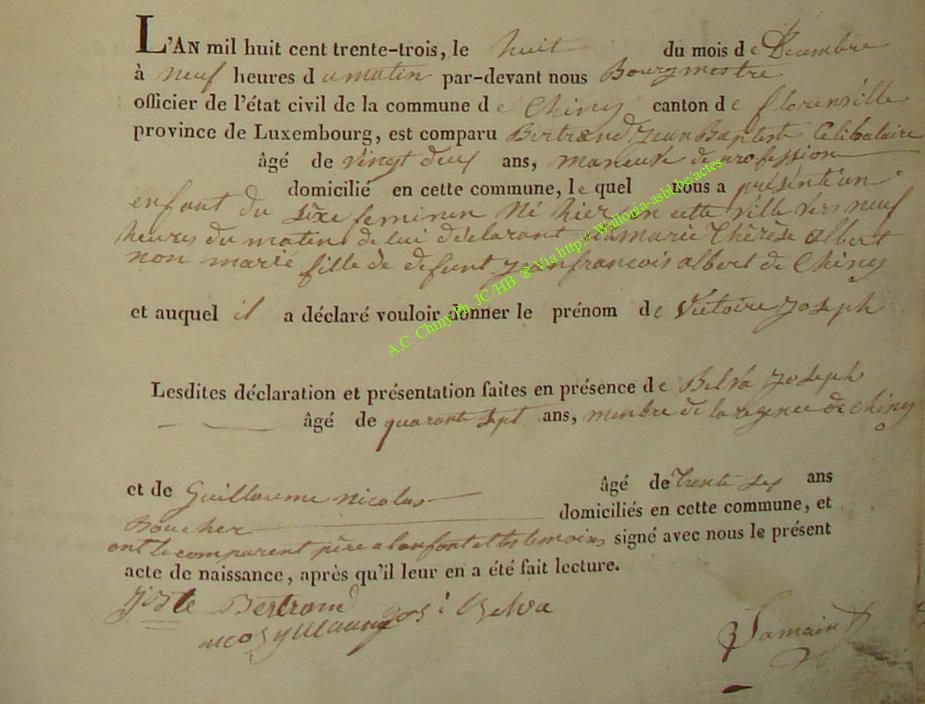 L'AN mil huit cent trente-trois, le huit du mois de Decembre
à neuf heures du matin par-devant nous Bourgmestre
officier de l'état civil de la commune de Chiny canton de florenville
province de Luxembourg, est comparu Bertrand Jean Baptiste Celibataire
âgé de vingt deux ans, maneuvre de profession
domicilié en cette commune, lequel nous a présenté un
enfant du sèxe feminin Né hier en cette ville vers neuf
heures du matin de lui déclarant et marie Thérèse albert
non marié fille de defunt jean francois albert de Chiny
et auquel il a déclaré vouloir donner le prénom de Victoire Joseph
Lesdites déclaration et présentation faites en présence de Belva Joseph
âgé de quarante sept ans, membre de la regence de Chiny
et de Guillaume nicolas âgé de trente six ans
Boucher domiciliés en cette commune, et
ont le comparent père a l'anfont et les temoins signé avec nous le présent
acte de naissance, après qu'il leur en a été fait lecture.
Bertrand
Belva
A.C. Chiny Ph. JC/HB @ Via http://Wallonia-asbl.be/actes